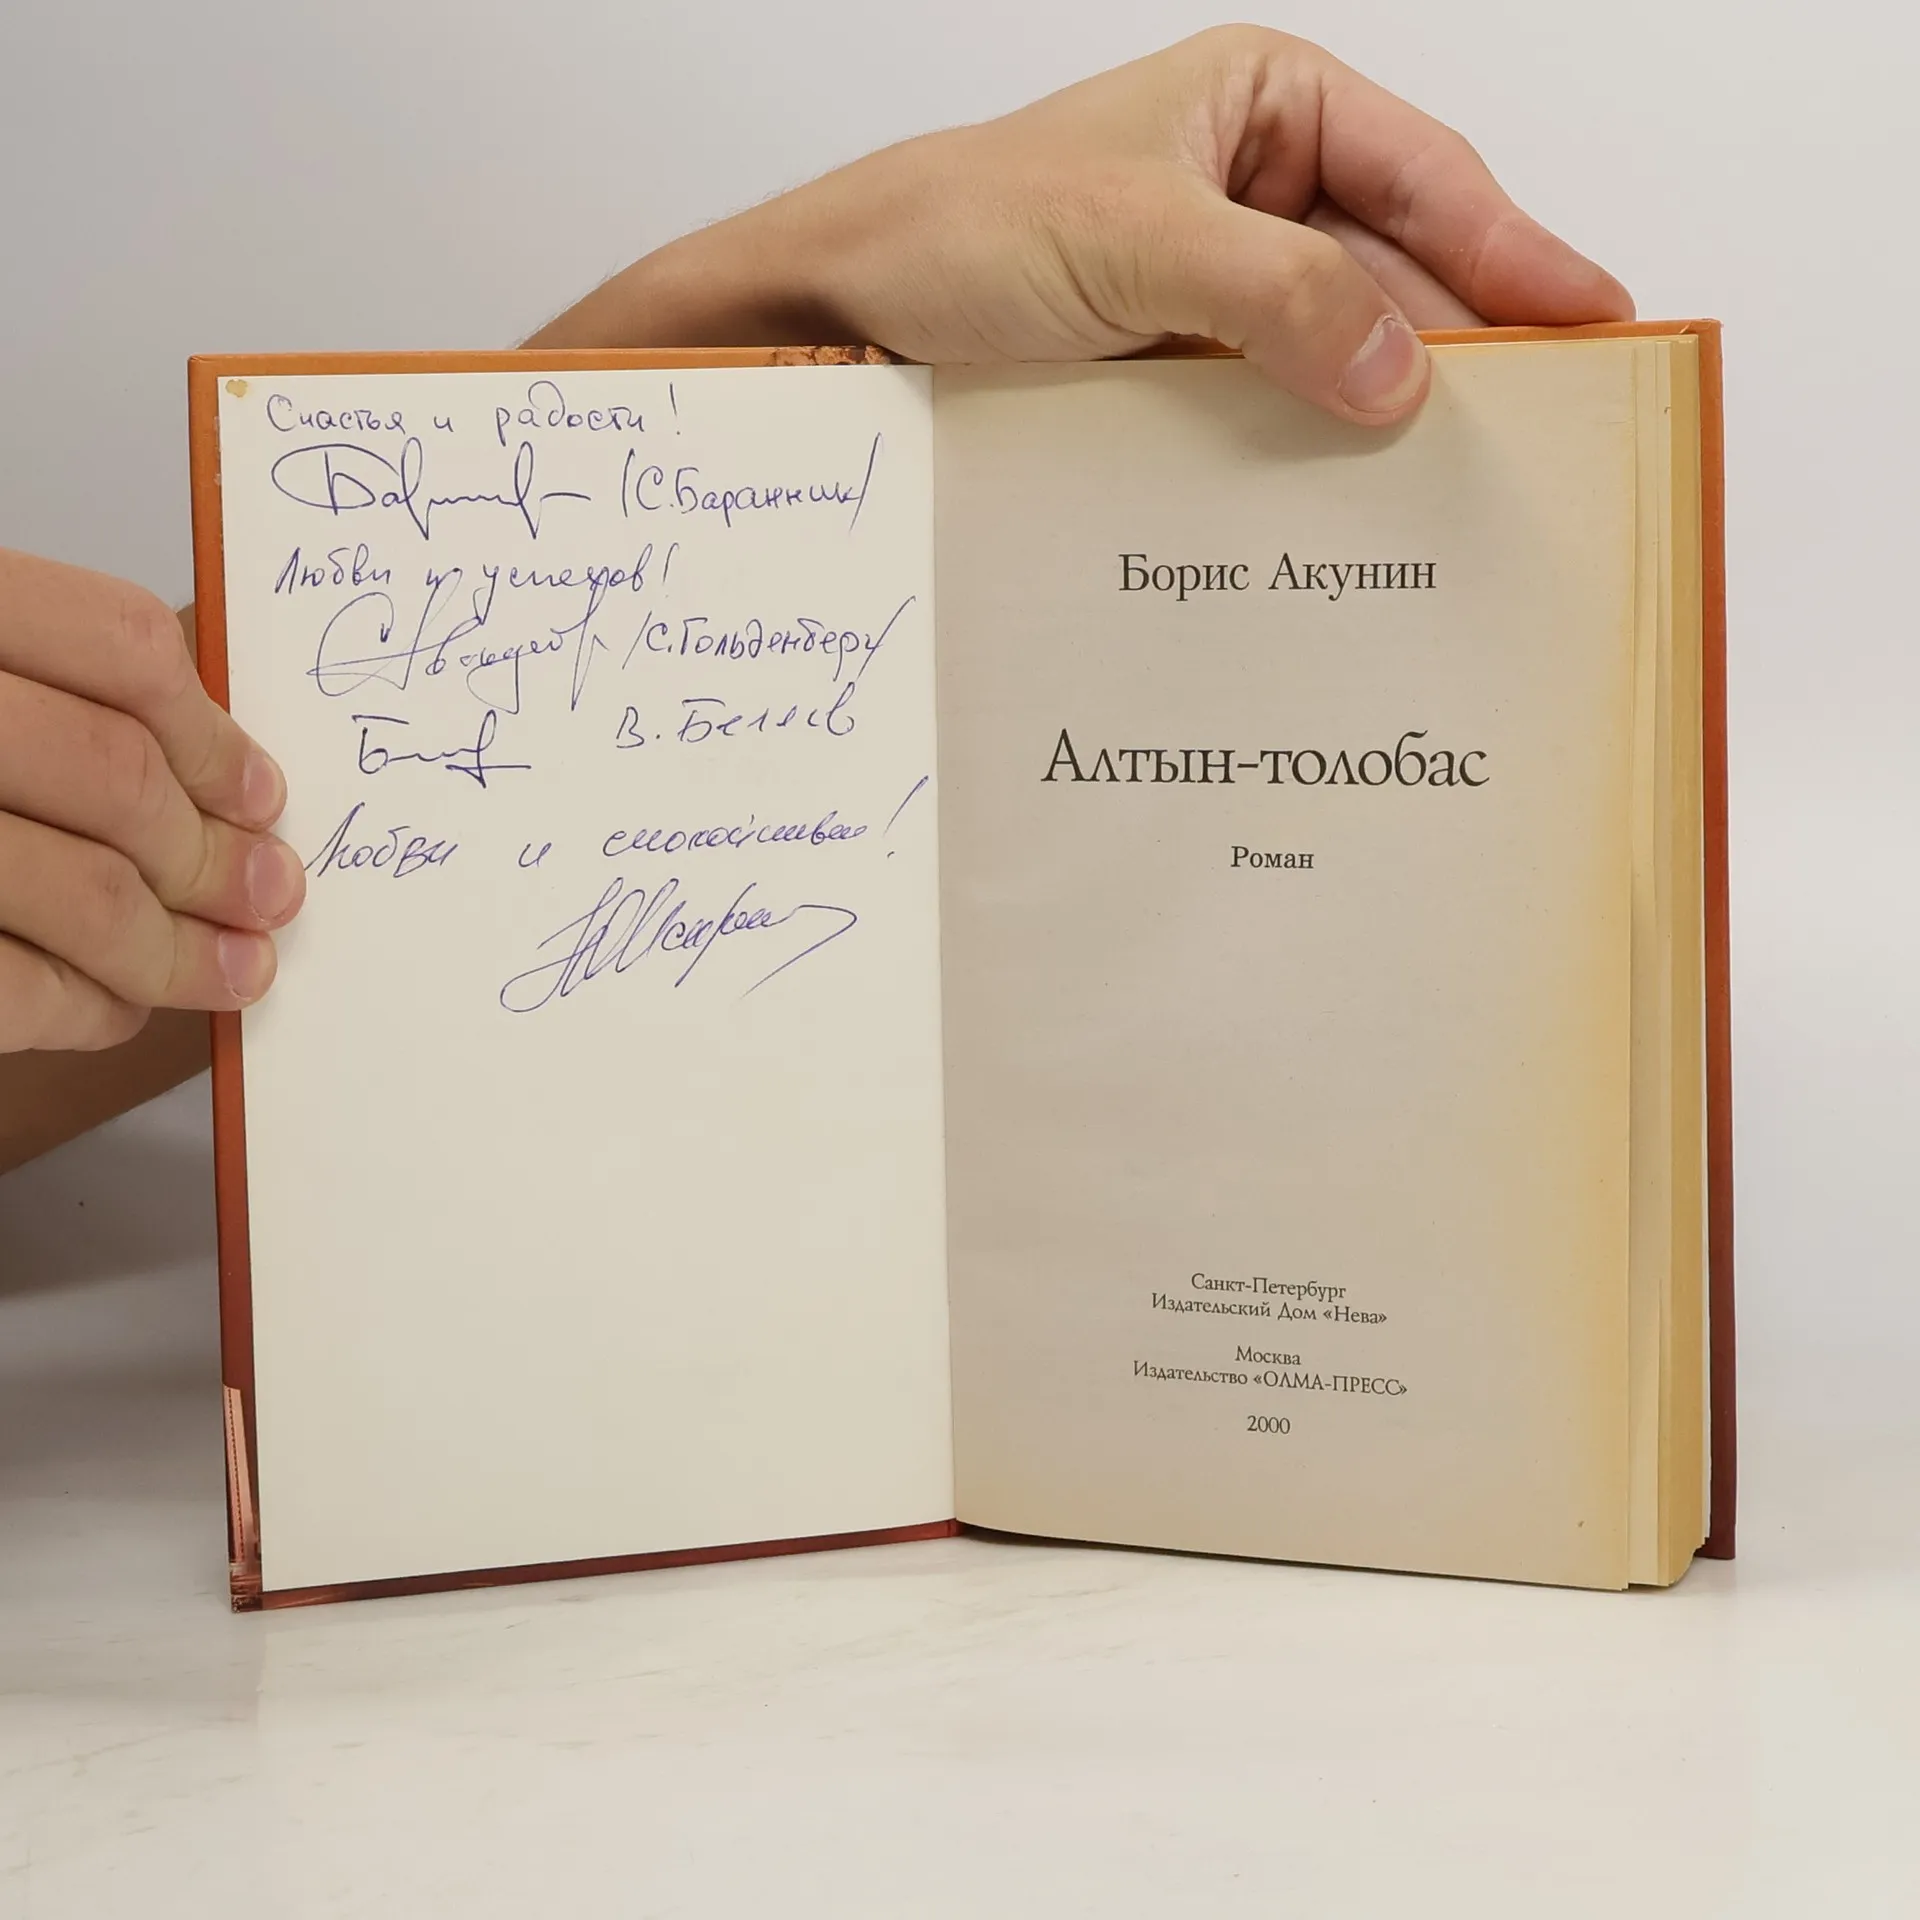 Счастья и радости!
/С. Баранник/
Любви и успехов!
/С. Гольденберг/
В. Беляев
Любви и спокойствия!
Борис Акунин
Алтын-толобас
Роман
Санкт-Петербург
Издательский Дом «Нева»
Москва
Издательство «ОЛМА-ПРЕСС»
2000